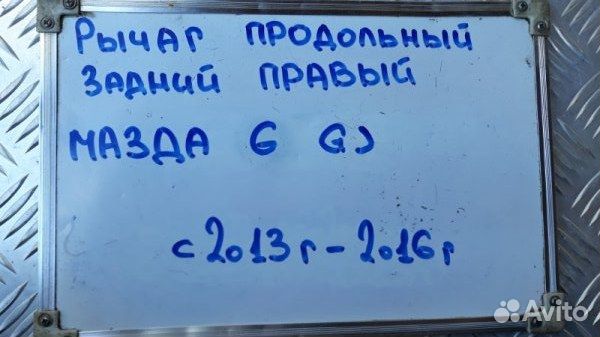 Рычаг продольный
задний правый
Мазда 6 GJ
с 2013г - 2016г
Avito